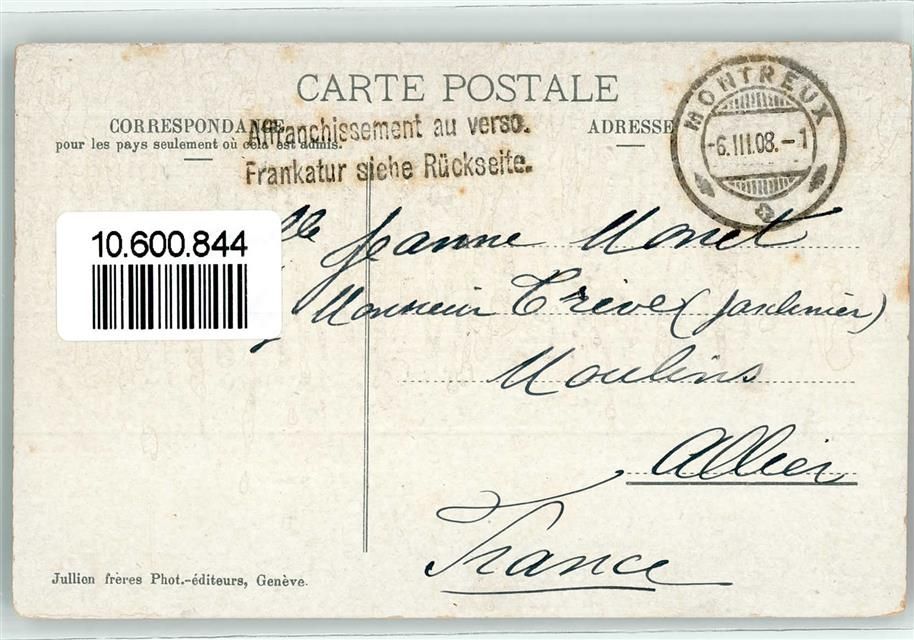 CARTE POSTALE
CORRESPONDANCE
pour les pays seulement où cela est admis.
ADRESSE
Affranchissement au verso.
Frankatur siehe Rückseite.
MONTREUX
-6.III.08.-1
10.600.844
lle Jeanne Monet
Monsieur Trève (Jardinier)
Moulins
Allier
France
Jullien frères Phot.-éditeurs, Genève.